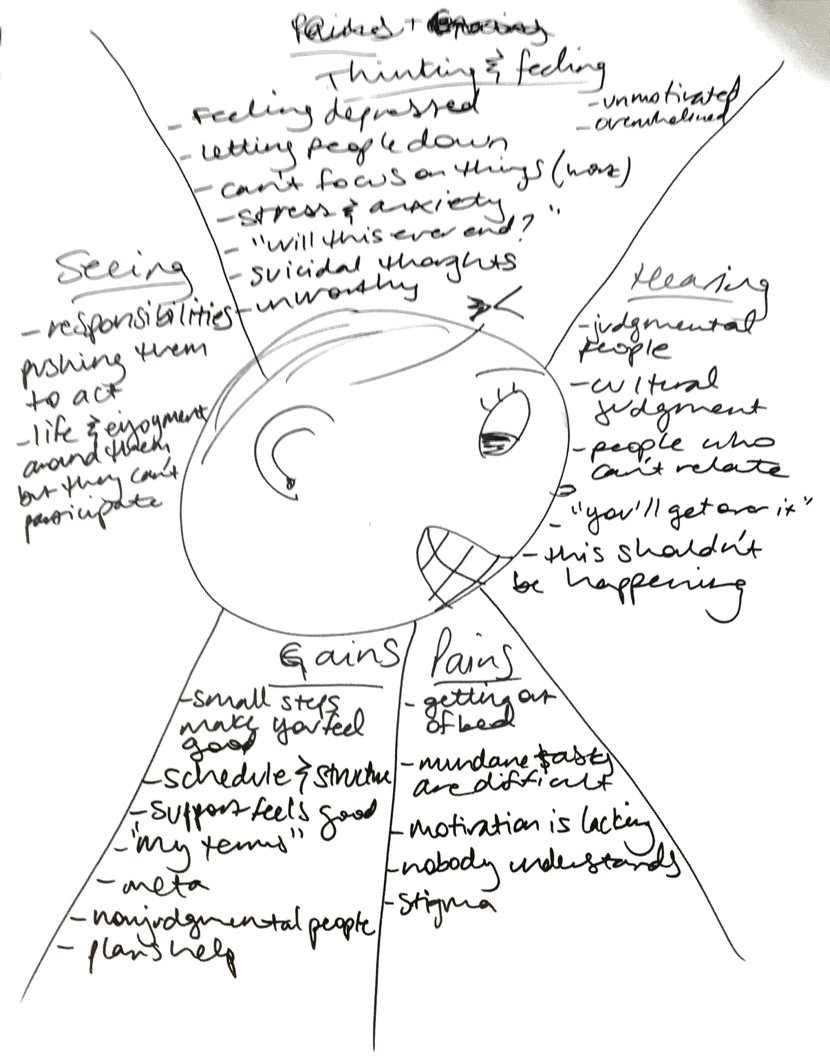 Thinking & feeling
- Feeling depressed
- unmotivated
- overwhelmed
- Letting people down
- can't focus on things (work)
- stress & anxiety
- "will this ever end?"
- suicidal thoghts
- unworthy
Seeing
- responsibilities
pushing them
to act
- life & enjoyment
around them
but they can't
participate
Hearing
- judgmental
people
- cultural
judgment
- people who
can't relate
- "you'll get over it"
- this shouldn't
be happening
Gains
- small steps
make you feel
good
- schedule & structure
- support feels good
- "my terms"
- meta
- nonjudgmental people
- plans help
Pains
- getting out
of bed
- mundane tasks
are difficult
- motivation is lacking
- nobody understands
- Stigma